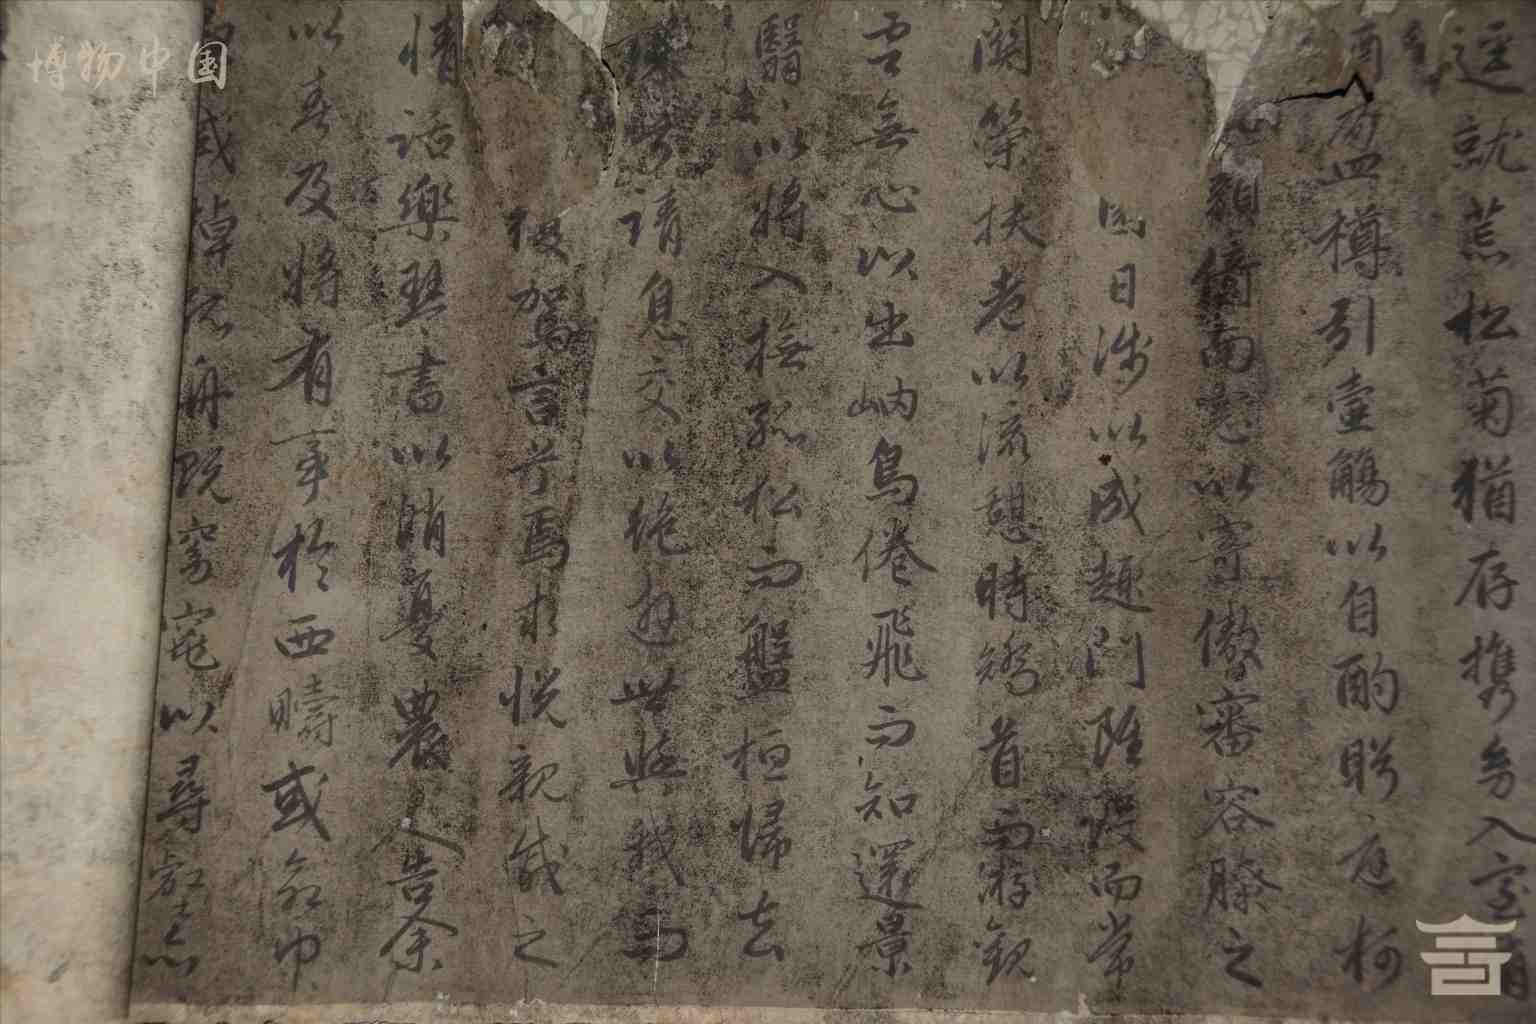 逕就荒松菊猶存携㓜入室有
酒盈樽引壺觴以自酌眄庭柯
顏倚南窓以寄傲審容膝之
園日涉以成趣門雖設而常
関策扶老以流憩時矯首而游觀
雲無心以出岫鳥倦飛而知還景
翳以將入撫孤松而盤桓歸去
来兮請息交以絶遊世與我而
復駕言兮焉求悅親戚之
情話樂琴書以消憂農人告余
以春及將有事於西疇或命巾
或棹孤舟既窈窕以尋壑亦
博物中国